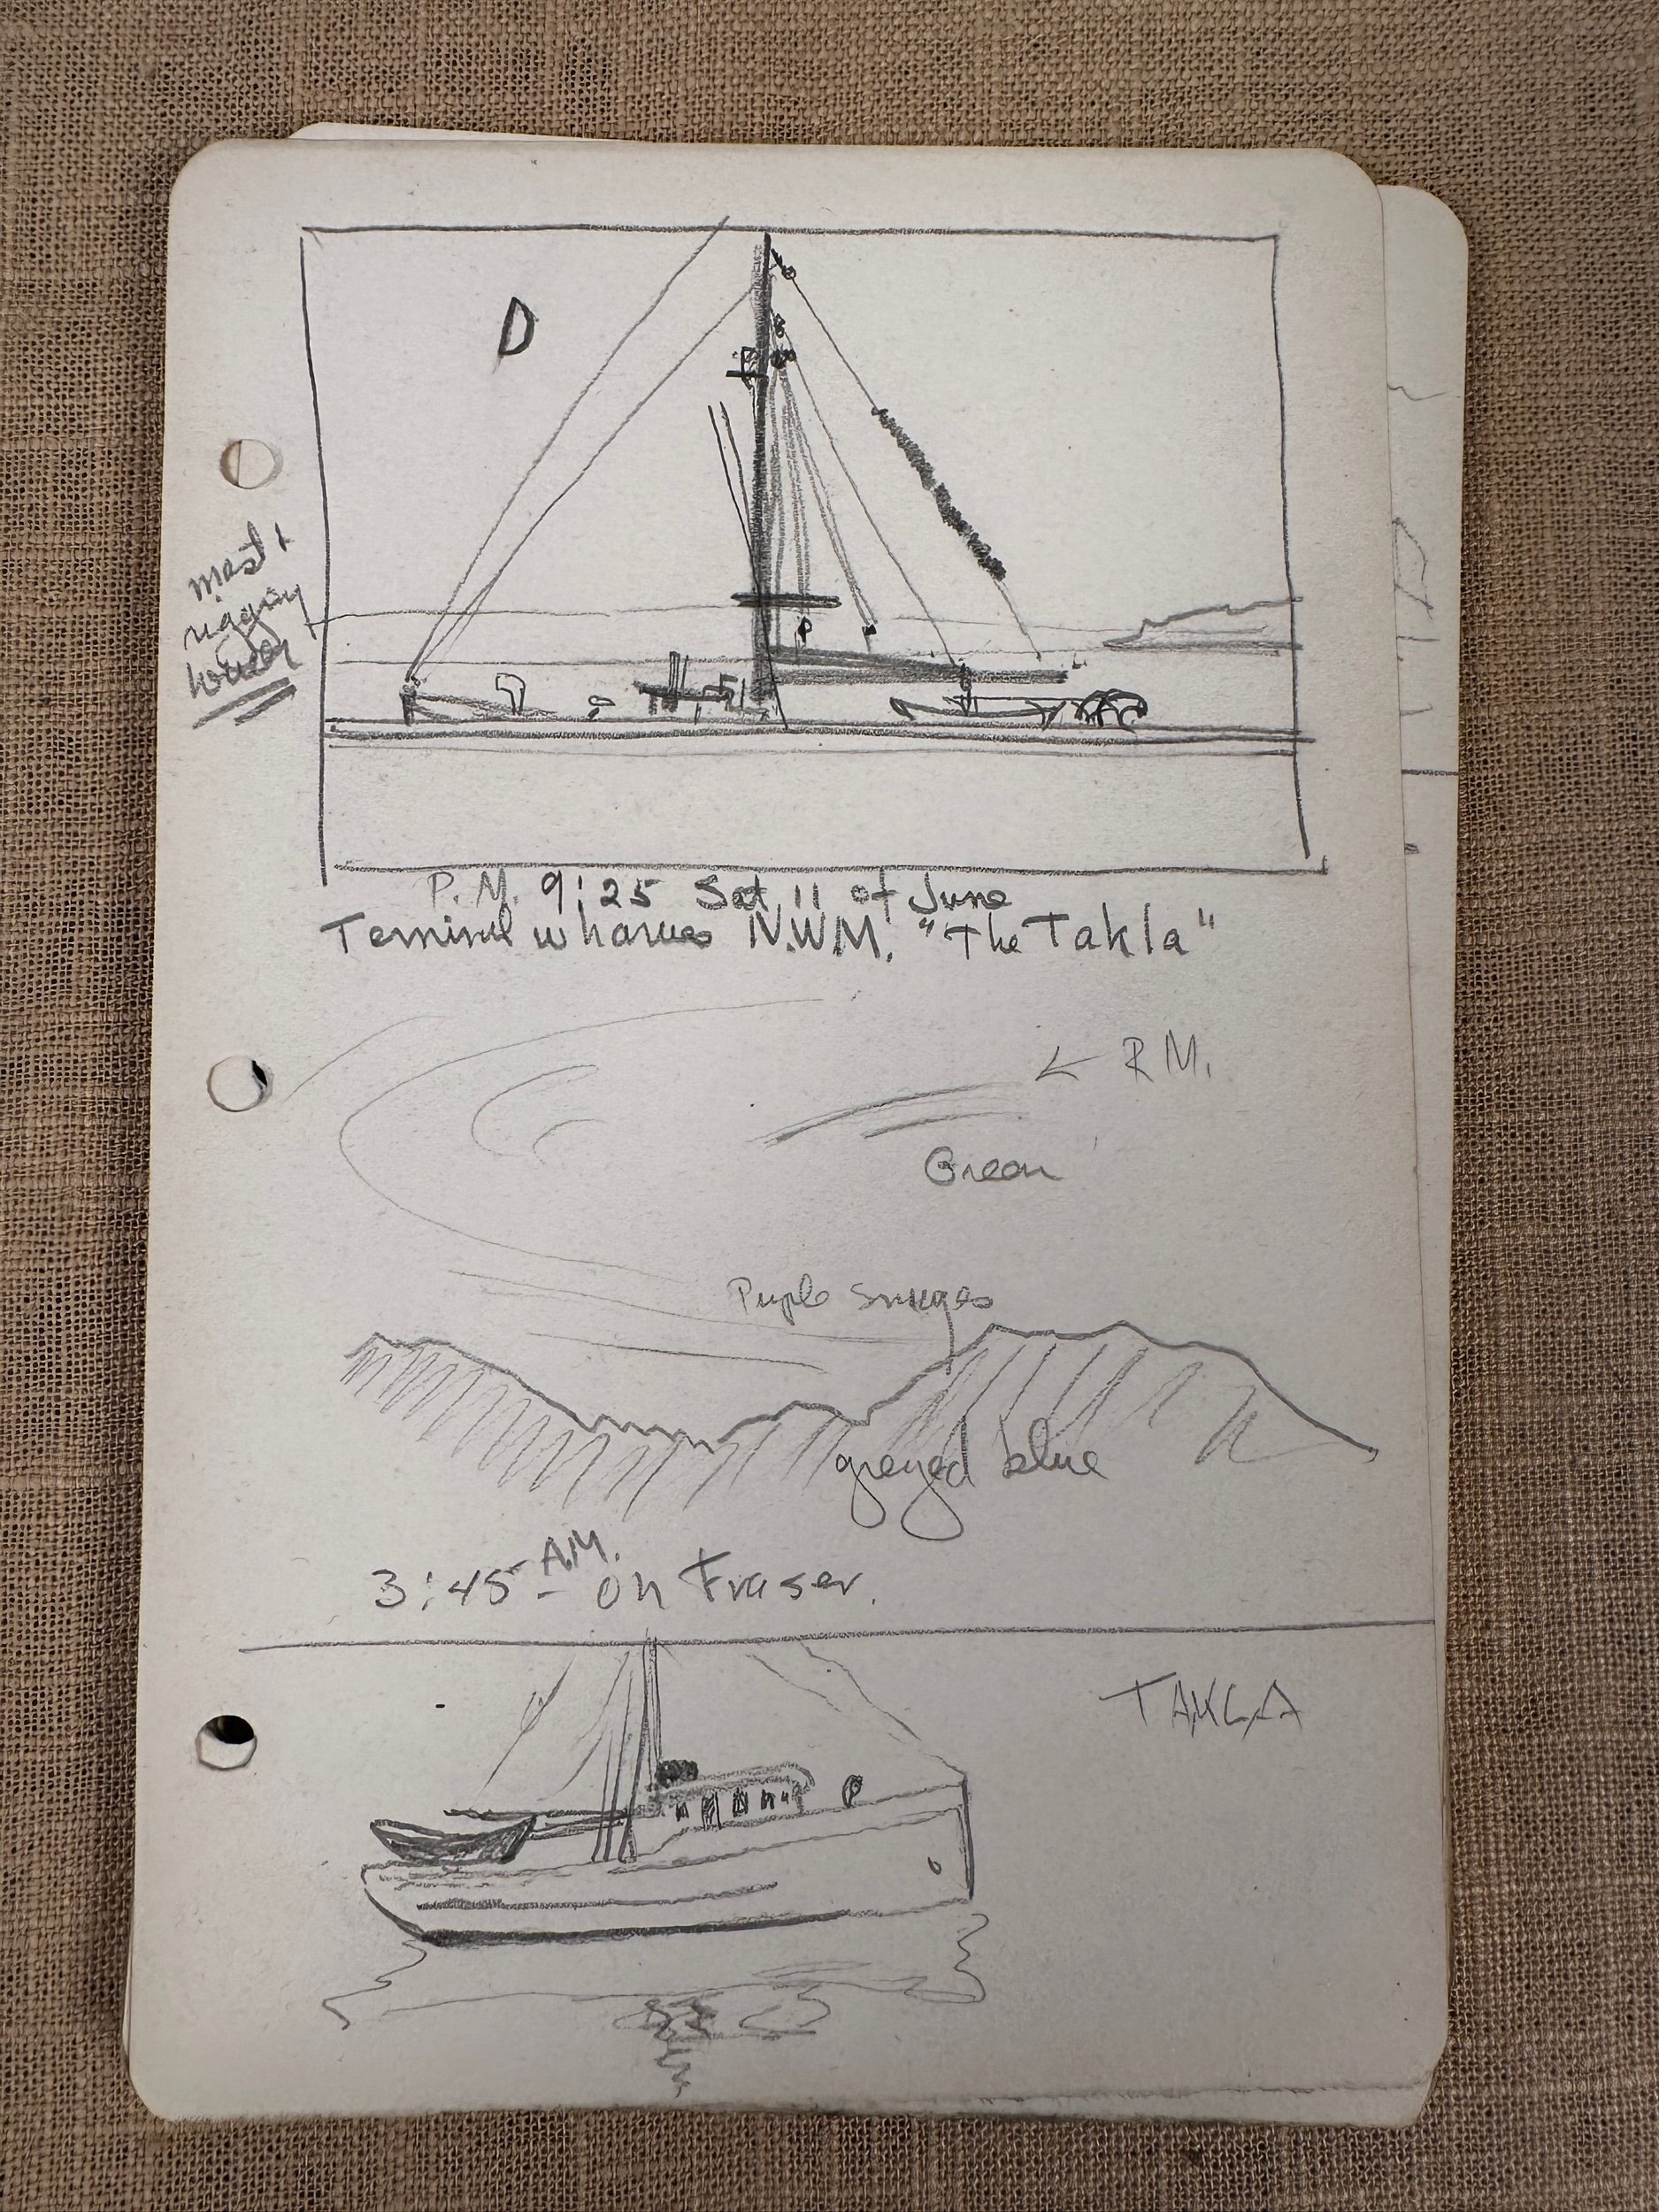 D
mast +
rigging
lower
P.M. 9:25 Sat 11 of June
Terminal wharves N.W.M. "The Takla"
← R M.
Green
Puple Smuges
greyed blue
3:45 A.M. - on Fraser.
TAKLA